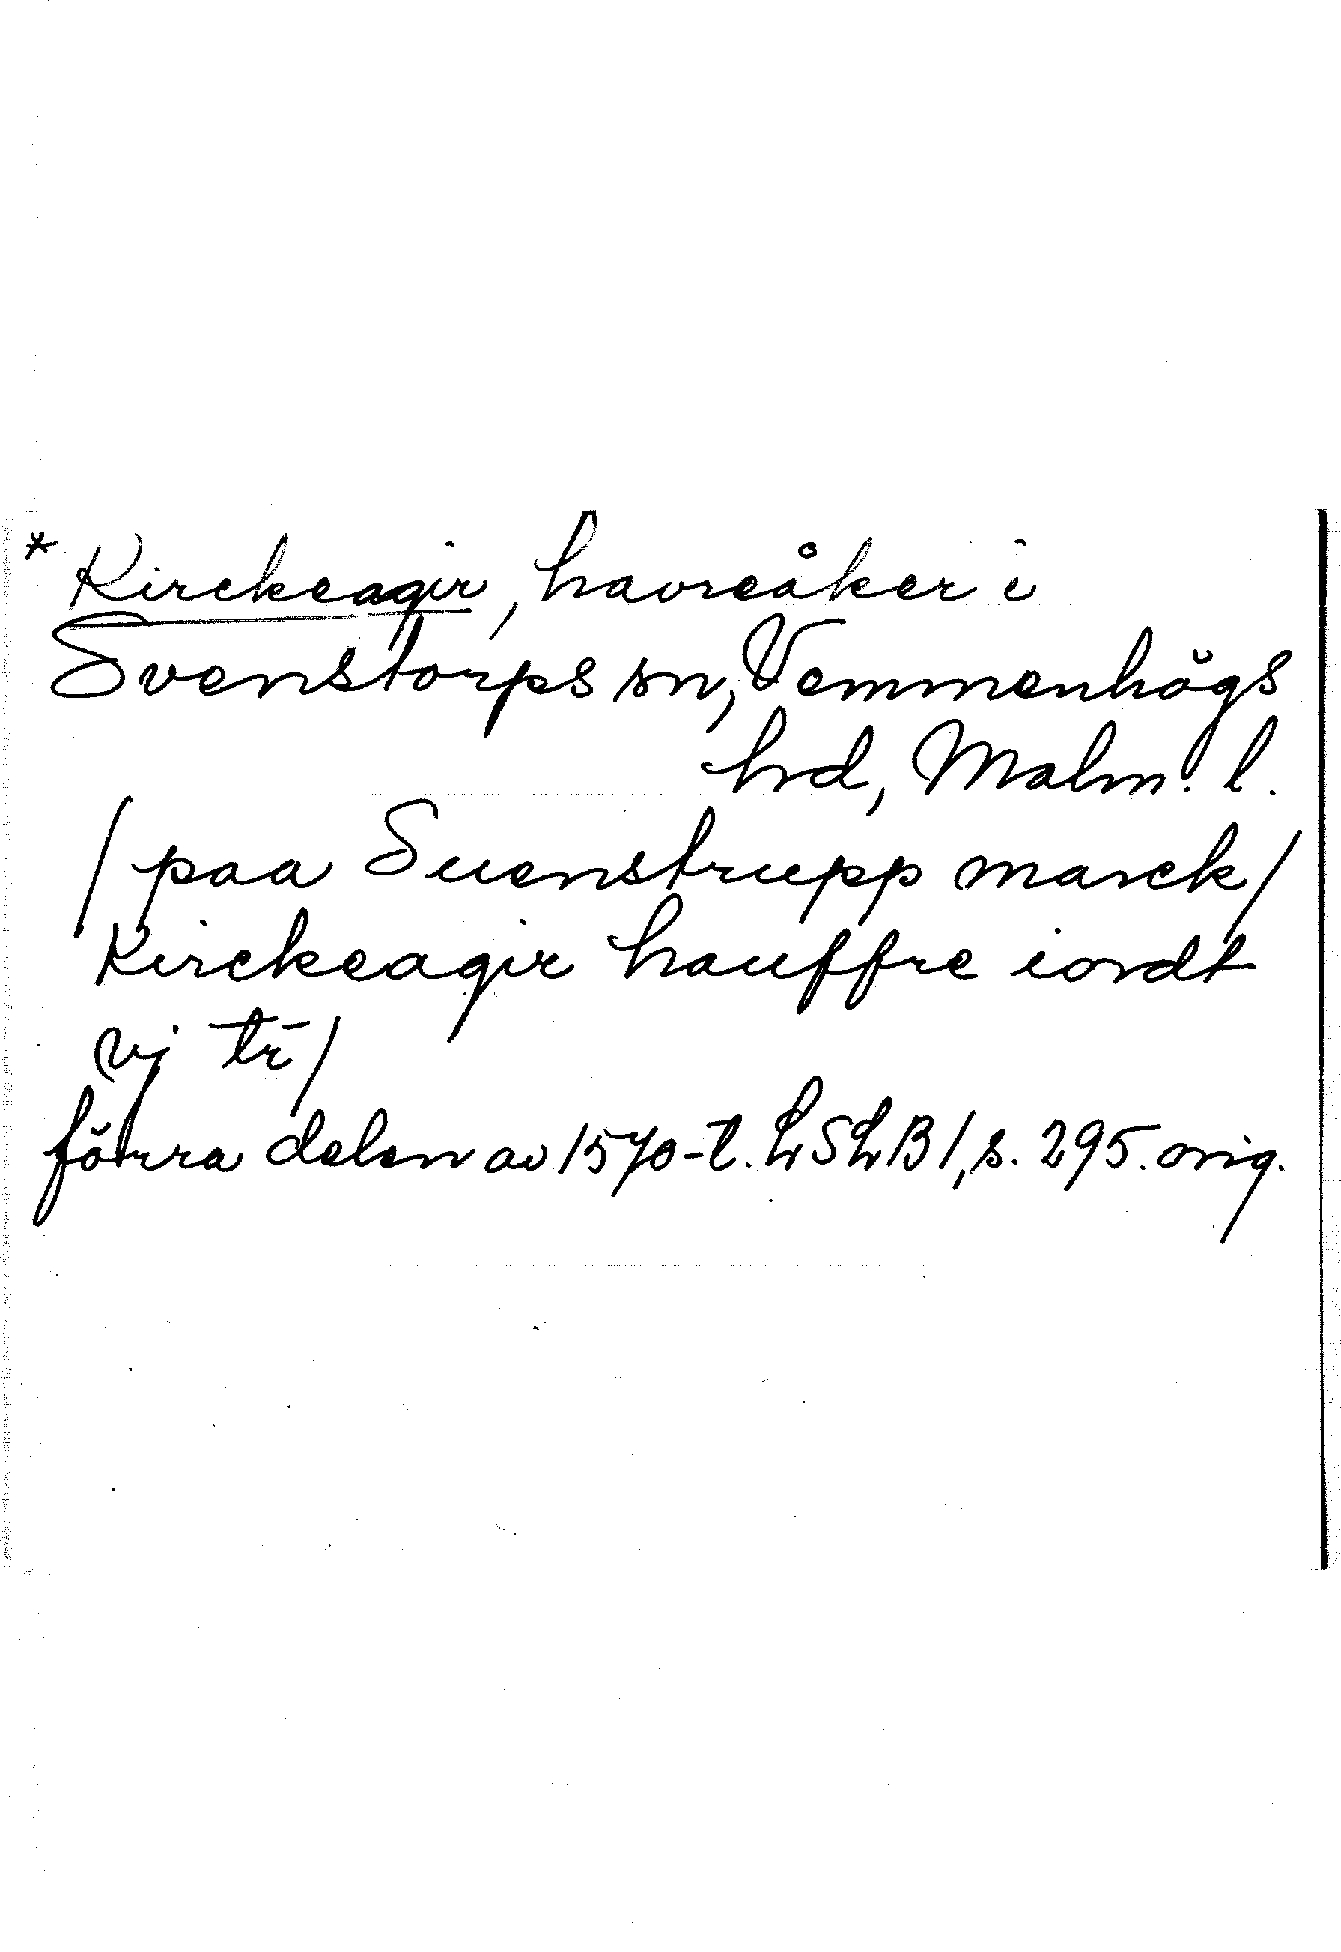 * Kirckeagir, havreåker i
Svenstorps sn, Vemmenhögs
hrd, Malm. l.
/paa Suenstrupp marck/
Kirckeagir hauffre iordt
vj tr̄/
förra delen av 1570-t. LSLB 1, s. 295. orig.